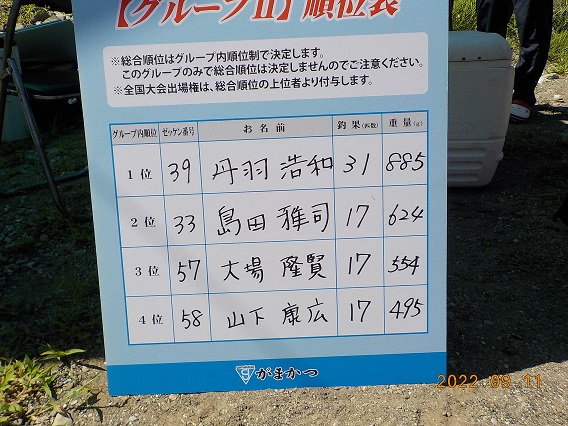 【グループⅡ】順位表
※総合順位はグループ内順位制で決定します。
このグループのみで総合順位は決定しませんのでご注意ください。
※全国大会出場権は、総合順位の上位者より付与します。
グループ内順位 ゼッケン番号 お名前 釣果(匹数) 重量(g)
1位 39 丹羽 浩和 31 885
2位 33 島田 雅司 17 624
3位 57 大場 隆賢 17 554
4位 58 山下 康広 17 495
がまかつ
2022 09 11